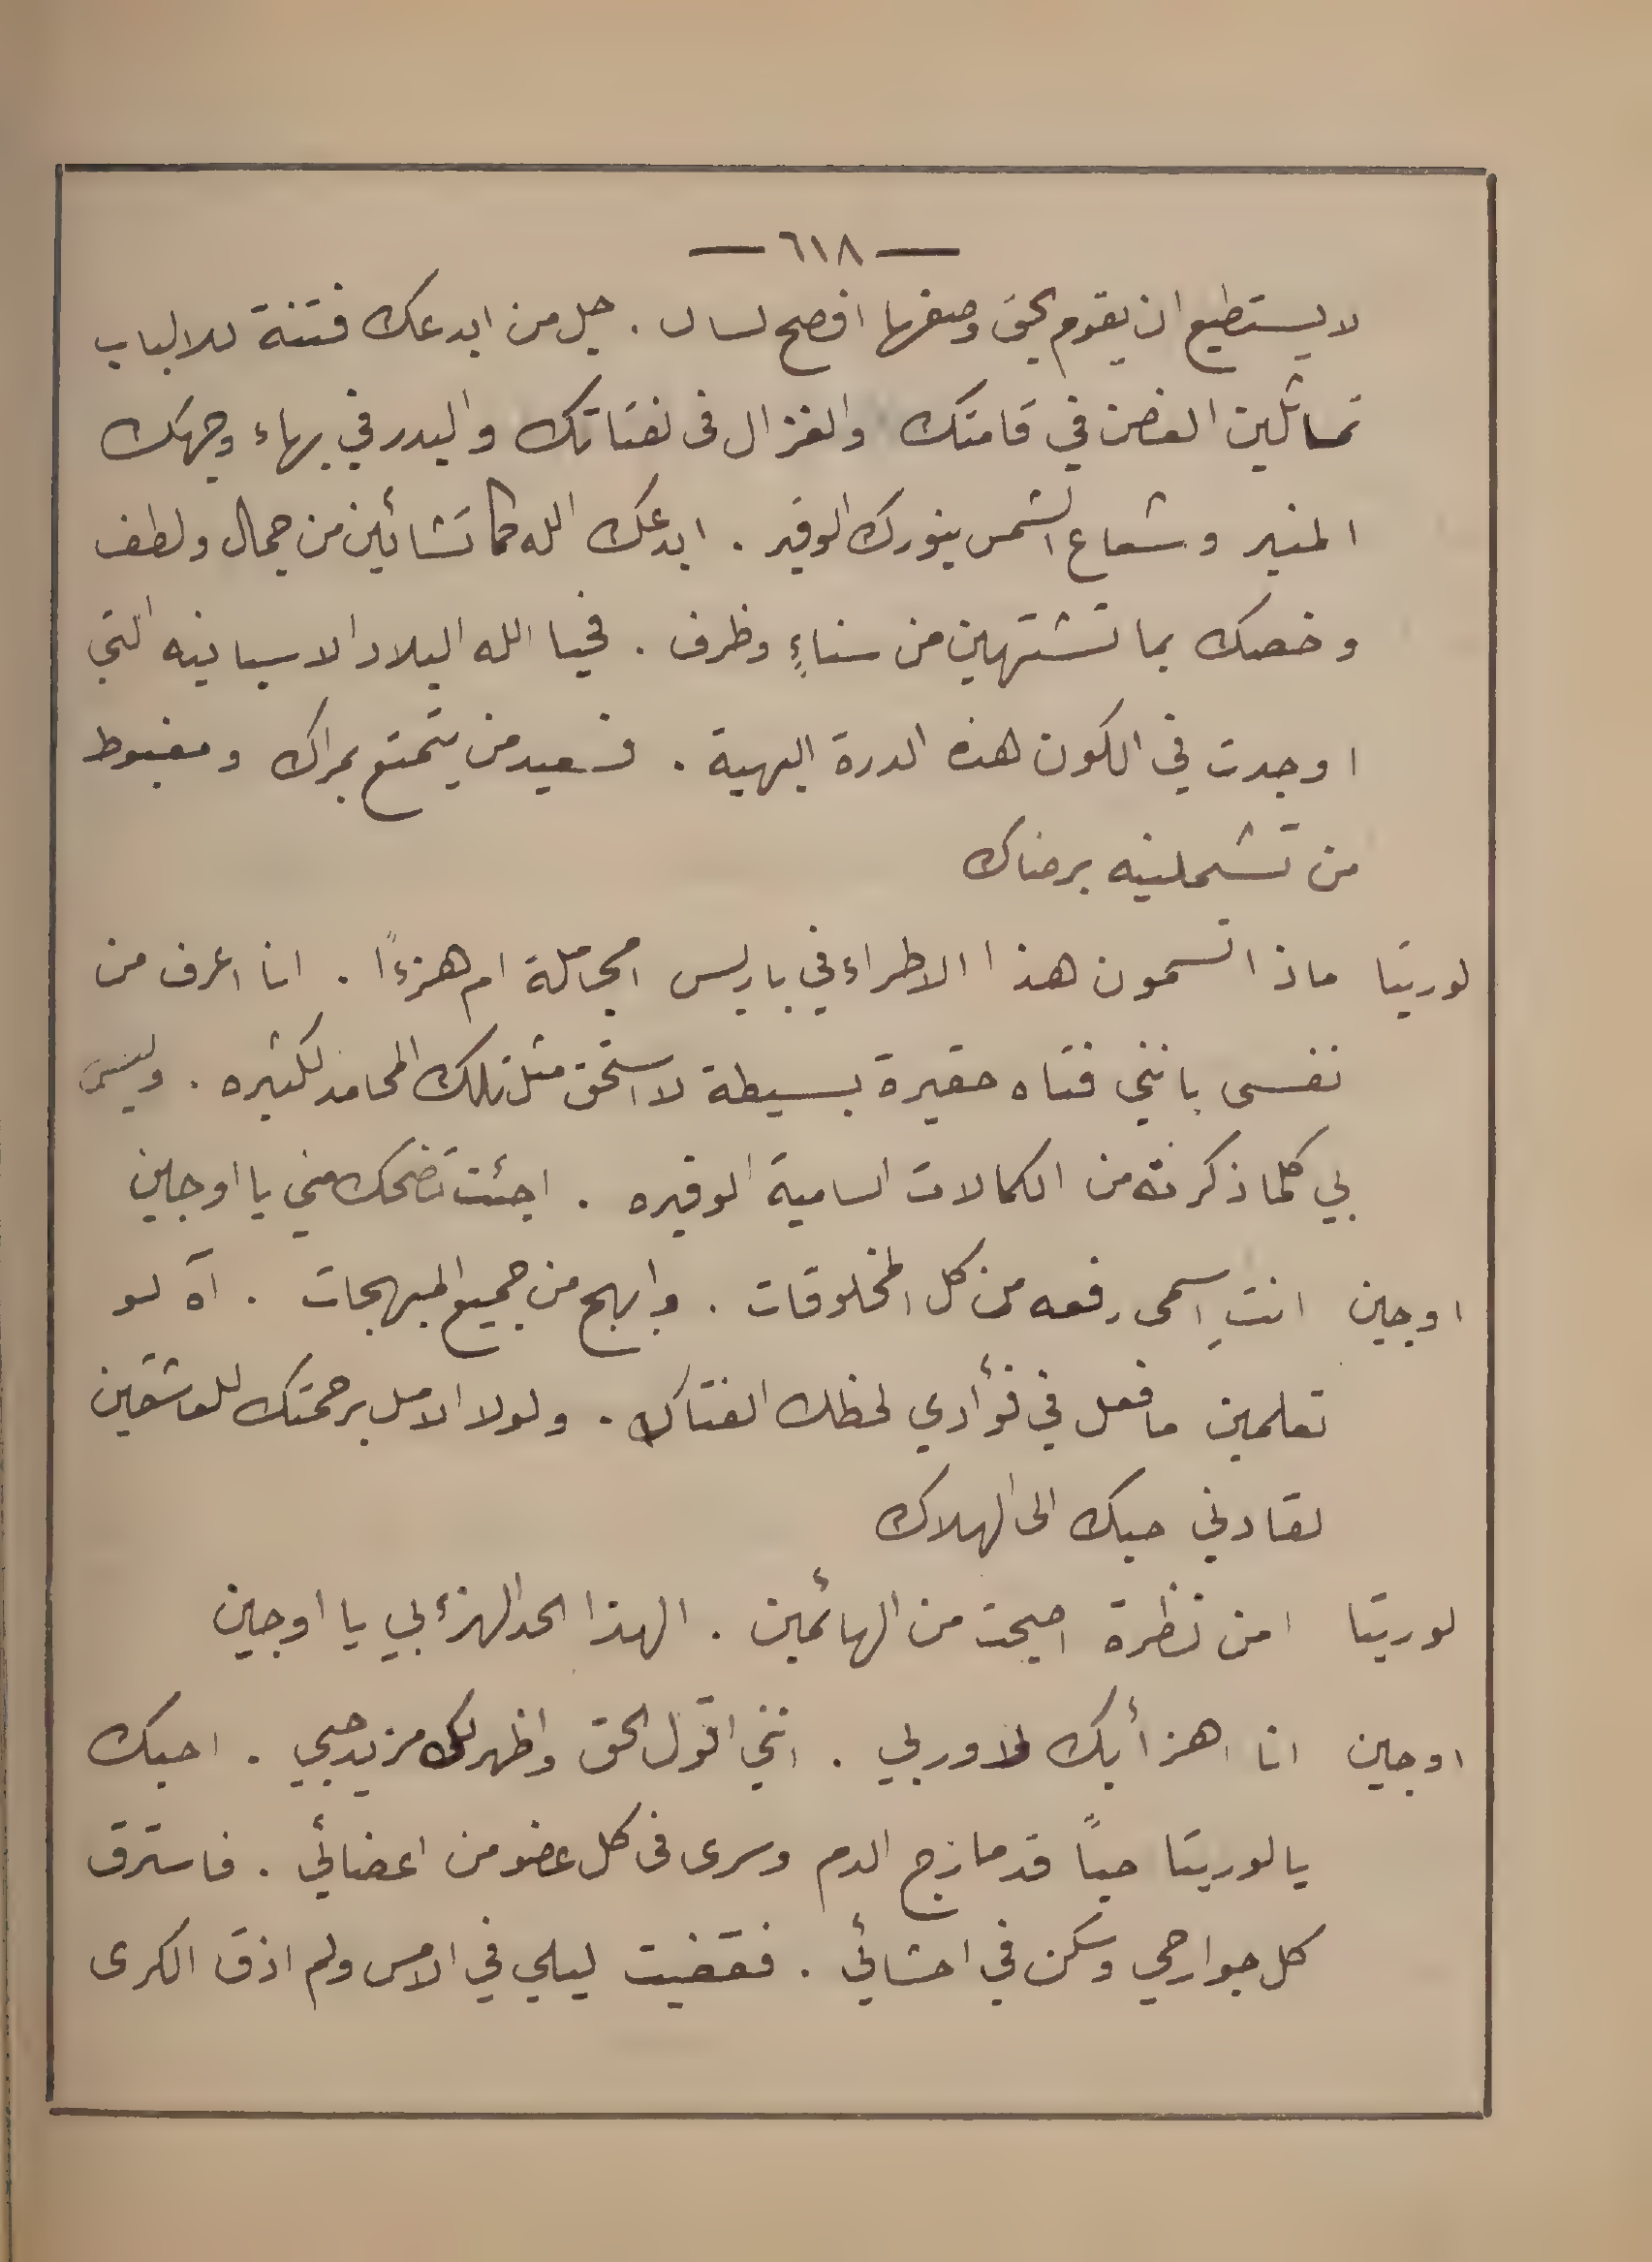 — ٦١٨ —
لا يستطيع ان يقوم بحق وصفها افصح لسان . جل من ابدعك فتنة للالباب
تماثلين الغصن في قامتك والغزال فى لفتاتك والبدر في بهاء وجهك
المنير وشعاع الشمس بنورك الوفير . ابدعك الله كما تشائين من جمال ولطف
وخصك بما تشتهين من سناءٍ وظرف . فحيا الله البلاد الاسبانيه التي
اوجدت في الكون هذه الدرة البهية . فسعيد من يتمتع بمراك ومغبوط
من تشملينه برضاك
لوريتا ماذا تسمون هذا الاطراء في باريس امجاملة ام هزءًا . انا اعرف من
نفسى بانني فتاه حقيرة بسيطة لا استحق مثل تلك المحامد لكثيره . وليس
بي كلما ذكرته من الكمالات السامية الوفيره . اجئت تضحك مني يا اوجين
اوجين انتِ اسمى رفعه من كل المخلوقات . وابهج من جميع المبهجات . آه لو
تعلمين ما فعل في فؤادي لحظك الفتاك . ولولا الامل برحمتك للعاشقين
لقادني حبك الى الهلاك
لوريتا امن نظرة اصبحت من الهائمين . الهذا الحد الهزء بي يا اوجين
اوجين انا اهزأ بك لا وربي . انني اقول الحق واظهر لك مزيد حبي . احبك
يا لوريتا حباً قد مازج الدم وسرى فى كل عضو من اعضائي . فاسترق
كل جوارحي وسكن في احشائي . فقضيت ليلي في الامس ولم اذق الكرى